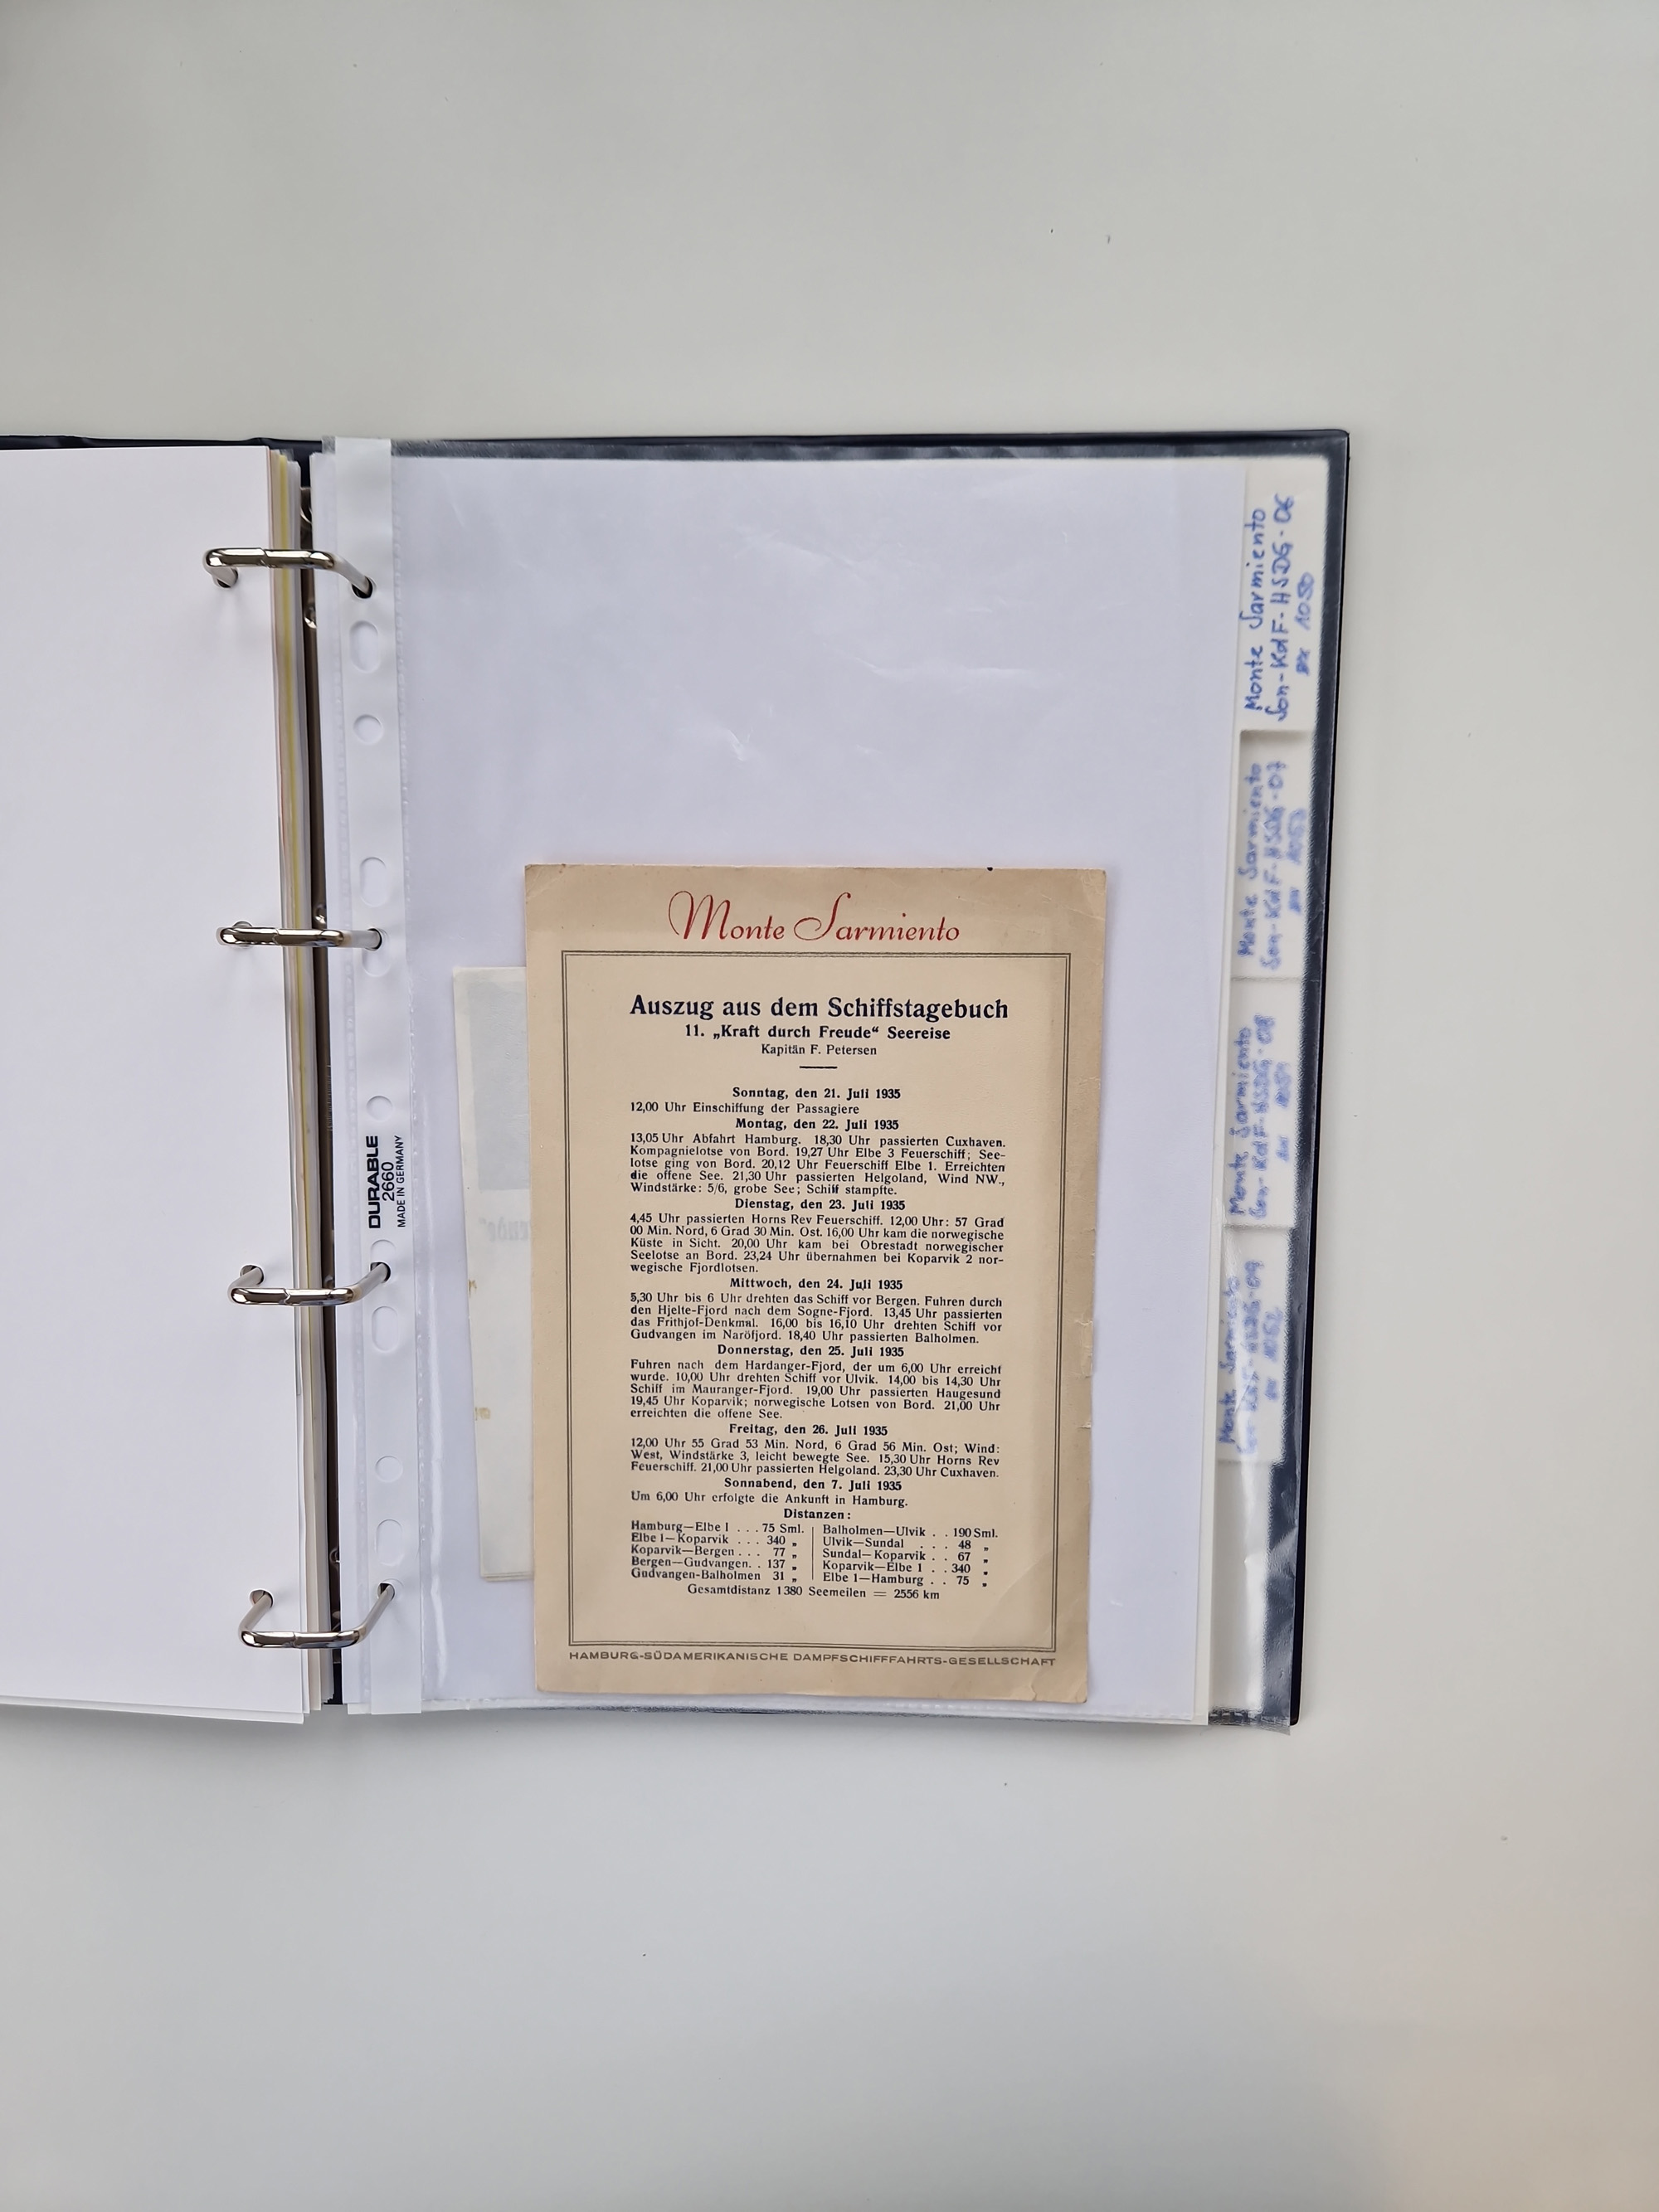 Monte Sarmiento
Auszug aus dem Schiffstagebuch
11. „Kraft durch Freude“ Seereise
Kapitän F. Petersen
Sonntag, den 21. Juli 1935
12,00 Uhr Einschiffung der Passagiere
Montag, den 22. Juli 1935
13,05 Uhr Abfahrt Hamburg. 18,30 Uhr passierten Cuxhaven.
Kompagnielotse von Bord. 19,27 Uhr Elbe 3 Feuerschiff; See-
lotse ging von Bord. 20,12 Uhr Feuerschiff Elbe 1. Erreichten
die offene See. 21,30 Uhr passierten Helgoland, Wind NW.,
Windstärke: 5/6, grobe See; Schiff stampfte.
Dienstag, den 23. Juli 1935
4,45 Uhr passierten Horns Rev Feuerschiff. 12,00 Uhr: 57 Grad
00 Min. Nord, 6 Grad 30 Min. Ost. 16,00 Uhr kam die norwegische
Küste in Sicht. 20,00 Uhr kam bei Obrestadt norwegischer
Seelotse an Bord. 23,24 Uhr übernahmen bei Koparvik 2 nor-
wegische Fjordlotsen.
Mittwoch, den 24. Juli 1935
5,30 Uhr bis 6 Uhr drehten das Schiff vor Bergen. Fuhren durch
den Hjelte-Fjord nach dem Sogne-Fjord. 13,45 Uhr passierten
das Frithjof-Denkmal. 16,00 bis 16,10 Uhr drehten Schiff vor
Gudvangen im Naröfjord. 18,40 Uhr passierten Balholmen.
Donnerstag, den 25. Juli 1935
Fuhren nach dem Hardanger-Fjord, der um 6,00 Uhr erreicht
wurde. 10,00 Uhr drehten Schiff vor Ulvik. 14,00 bis 14,30 Uhr
Schiff im Mauranger-Fjord. 19,00 Uhr passierten Haugesund
19,45 Uhr Koparvik; norwegische Lotsen von Bord. 21,00 Uhr
erreichten die offene See.
Freitag, den 26. Juli 1935
12,00 Uhr 55 Grad 53 Min. Nord, 6 Grad 56 Min. Ost; Wind:
West, Windstärke 3, leicht bewegte See. 15,30 Uhr Horns Rev
Feuerschiff. 21,00 Uhr passierten Helgoland. 23,30 Uhr Cuxhaven.
Sonnabend, den 7. Juli 1935
Um 6,00 Uhr erfolgte die Ankunft in Hamburg.
Distanzen:
Hamburg—Elbe I . . . 75 Sml.
Elbe 1—Koparvik . . . 340 „
Koparvik—Bergen . . . 77 „
Bergen—Gudvangen. . 137 „
Gudvangen-Balholmen 31 „
Balholmen—Ulvik . . 190 Sml.
Ulvik—Sundal . . . 48 „
Sundal—Koparvik . . 67 „
Koparvik—Elbe 1 . . 340 „
Elbe 1—Hamburg . . 75 „
Gesamtdistanz 1380 Seemeilen = 2556 km
HAMBURG-SÜDAMERIKANISCHE DAMPFSCHIFFFAHRTS-GESELLSCHAFT
DURABLE
2660
MADE IN GERMANY
Monte Sarmiento
Son-KdF-HSDG-06
1050
Monte Sarmiento
Son-KdF-HSDG-07
Monte Sarmiento
Son-KdF-HSDG-08
Monte Sarmiento
Son-KdF-HSDG-09